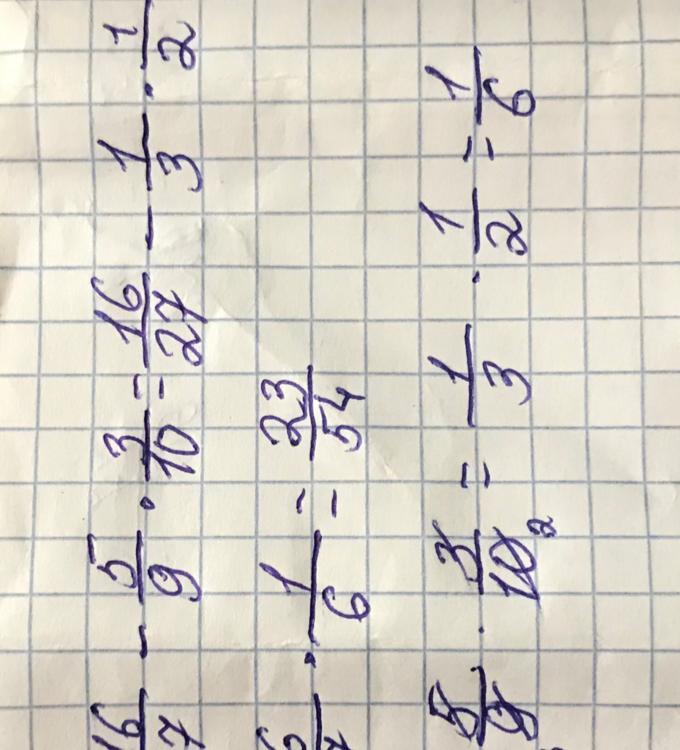 16/7 - 5/9 · 3/10 = 16/27 - 1/3 · 1/2
· 1/6 = 23/54
5/9 · 3/10 2 = 1/3 · 1/2 = 1/6